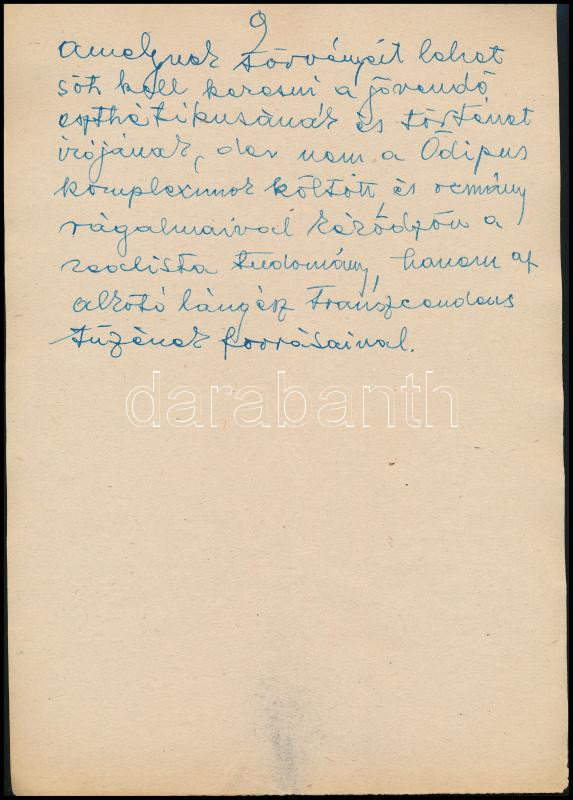 9
amelynek törvényeit lehet
sőt kell keresni a jövendő
esthétikusának és történet
irójának, de nem a Ödipus
komplexumok költött, és ocmány
rágalmaival kérődzőn a
realista tudomány, hanem az
alkotó lángész transzcendens
tüzének forrásainál.
darabanth